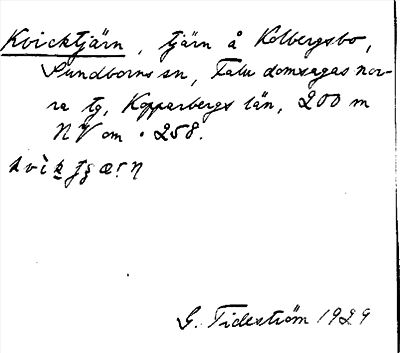 Kvicktjärn, tjärn å Kolbergsbo,
Sundborns sn, Falu domsagas nor-
ra tg, Kopparbergs län, 200 m
NV om · 258.
G. Tideström 1929